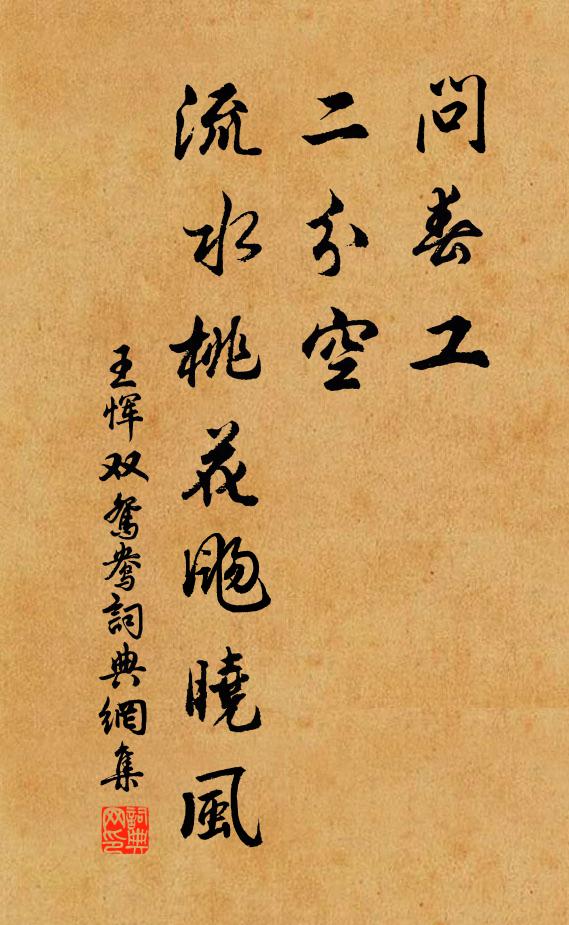 問春工
二分空
流水桃花飏曉風
王恽双鴛鴦詞典網集
詞典网印